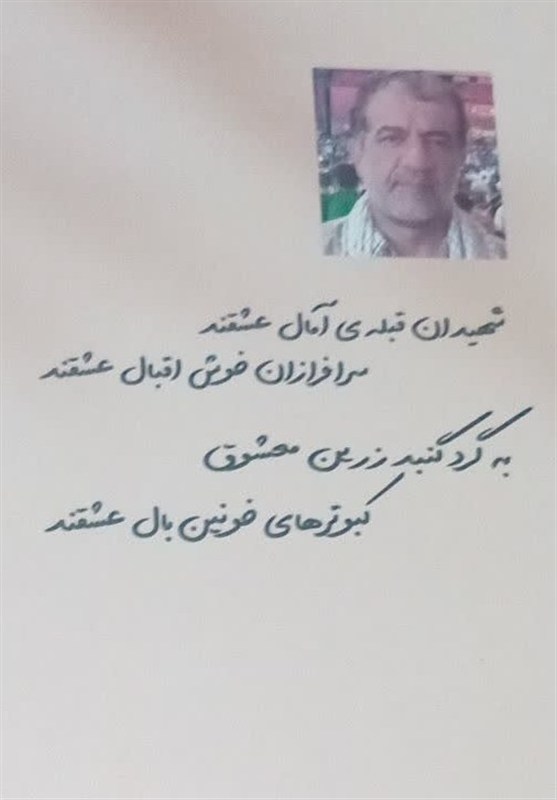 شهیدان قبله‌ی آمال عشقند
سرافرازان خوش اقبال عشقند
به گرد گنبد زرین معشوق
کبوترهای خونین بال عشقند